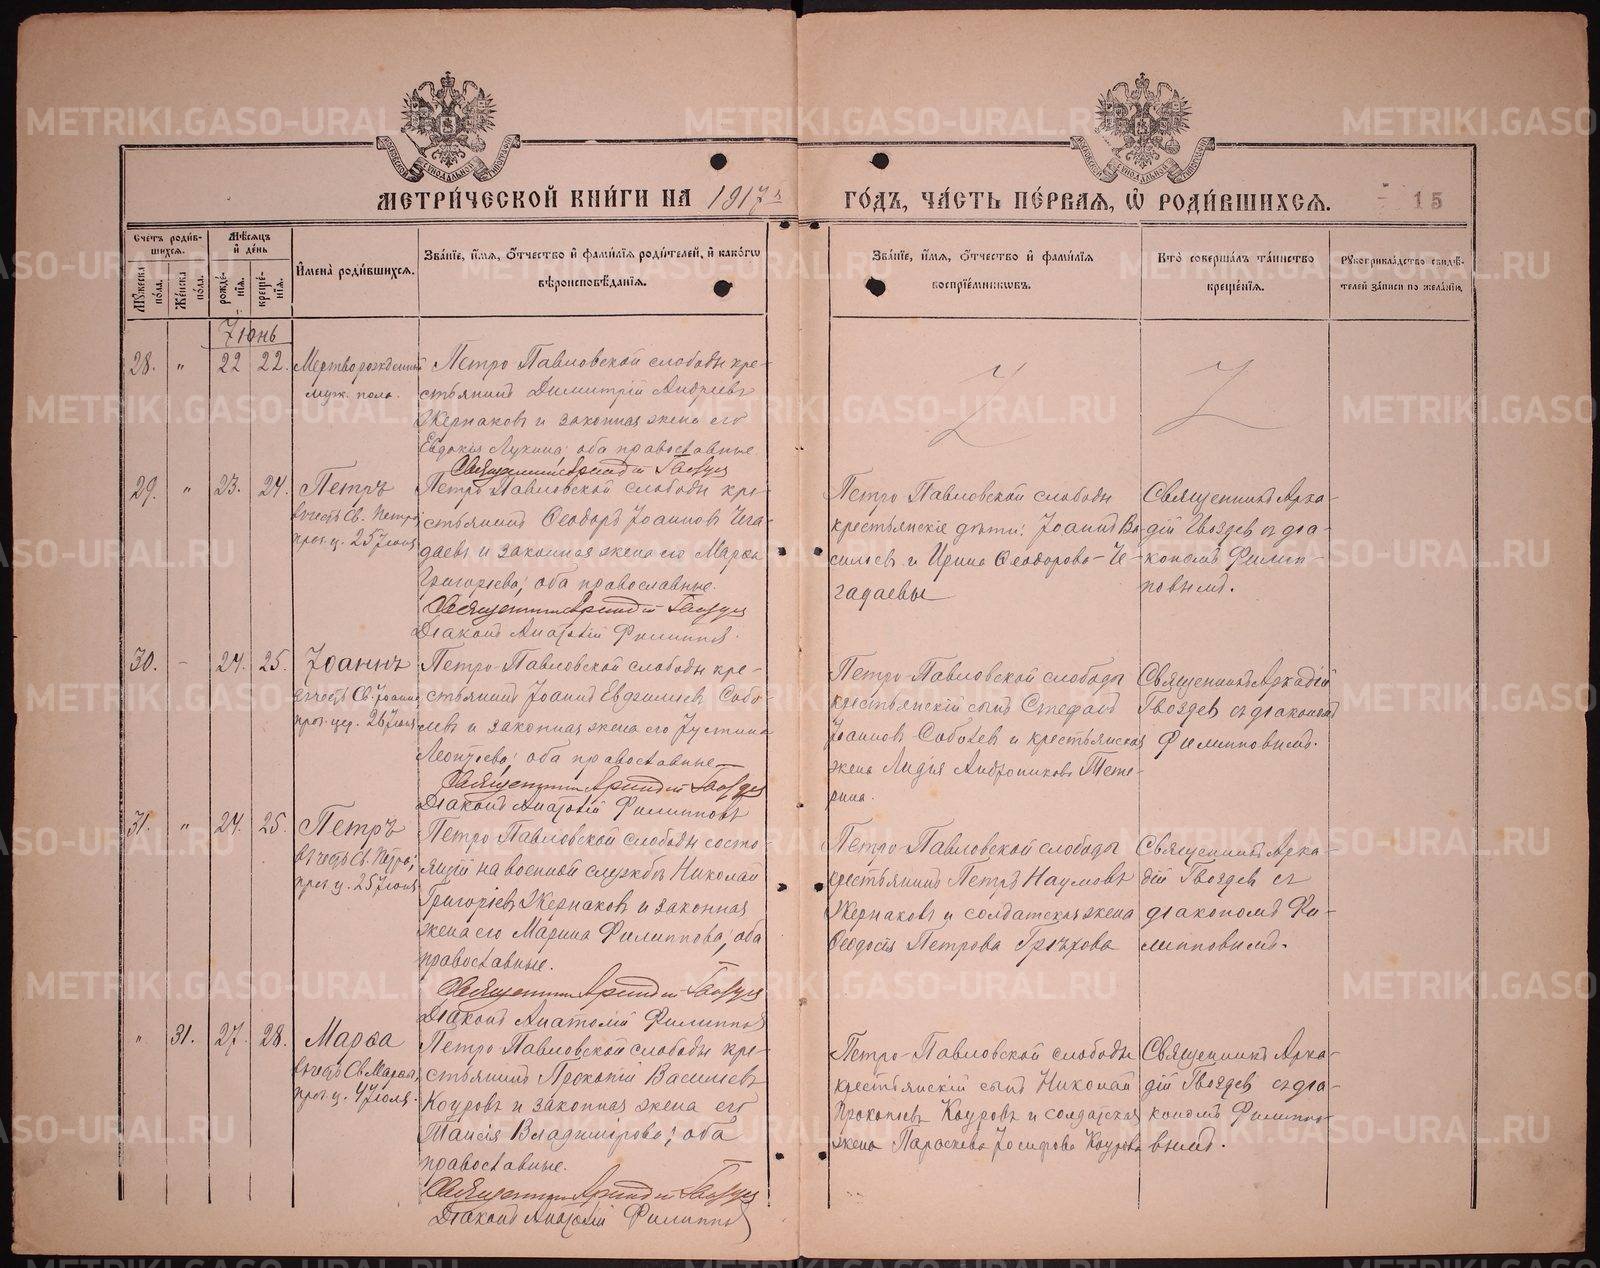 МЕТРИ́ЧЕСКОЙ КНИ́ГИ НА 1917 й
ГО́ДЪ, ЧА́СТЬ ПЕ́РВАЯ, Ѡ РОДИ́ВШИХСЯ.
15
Счетъ роди́в-
шихся.
Му́жеска по́ла.
Же́нска по́ла.
Мѣ́сяцъ
и де́нь
рожде́-
нія.
креще́-
нія.
И́мена роди́вшихся.
Зва́ніе, и́мя, о́тчество и фами́лія роди́телей, и како́гѡ
вѣроисповѣ́данія.
Зва́ніе, и́мя, о́тчество и фами́лія
воспріе́мниковъ.
Кто̀ соверша́лъ та́инство
креще́нія.
Рꙋкоприкла́дство свидѣ́-
телей за́писи по жела́нію.
Іюнь
28. " 22 22.
Мертворожденный
муж. пола.
Петро Павловской слободы кре-
стьянинъ Димитрій Андреевъ
Жернаковъ и законная жена его
Евдокія Лукина; оба православные.
Священникъ Аркадій Гвоздев
29. " 23. 24.
Петръ
въ честь Св. Петра;
праз. ц. 25 Іюня
Петро Павловской слободы кре-
стьянинъ Ѳеодоръ Іоанновъ Чега-
даевъ и законная жена его Марѳа
Григорьева; оба православные.
Священникъ Аркадій Гвоздев
Діаконъ Анатолій Филиппов.
Петро Павловской слободы
крестьянскіе дѣти: Іоаннъ Ва-
сильев и Ирина Ѳеодорова - Че-
гадаевы
Священникъ Арка-
дій Гвоздев съ діа-
кономъ Филип-
повымъ.
30. - 24. 25.
Іоаннъ
въ честь Св. Іоанна,
праз. цер. 26 Іюня
Петро-Павловской слободы кре-
стьянинъ Іоаннъ Евѳиміевъ Собо-
левъ и законная жена его Іустина
Леонтіева; оба православные
Священникъ Аркадій Гвоздев
Діаконъ Анатолій Филипповъ
Петро-Павловской слободы
крестьянскій сынъ Стефанъ
Іоанновъ Соболев и крестьянская
жена Лидія Андроникова Тете-
рина.
Священникъ Аркадій
Гвоздев съ діакономъ
Филипповымъ.
31. " 24. 25.
Петръ
въ честь Св. Петра;
праз. ц. 25 Іюня
Петро Павловской слободы состо-
ящій на военной службѣ Николай
Григорьевъ Жернаковъ и законная
жена его Марина Филиппова; оба
православные.
Священникъ Аркадій Гвоздев
Діаконъ Анатолій Филиппов
Петро-Павловской слободы
крестьянинъ Петръ Наумовъ
Жернаковъ и солдатская жена
Ѳеодосія Петрова Грѣхова
Священникъ Арка-
дій Гвоздев съ
діакономъ Фи-
липповымъ.
" 31. 27. 28.
Марѳа
въ честь Св. Марѳы,
праз. ц. 4 Іюля.
Петро-Павловской слободы кре-
стьянинъ Прокопій Васильевъ
Коуровъ и законная жена его
Таисія Владимірова; оба
православные.
Священникъ Аркадій Гвоздев
Діаконъ Анатолій Филиппов
Петро-Павловской слободы
крестьянскій сынъ Николай
Прокопьев Коуровъ и солдатская
жена Параскева Іосифова Коурова
Священникъ Арка-
дій Гвоздев съ діа-
кономъ Филиппо-
вымъ.
METRIKI.GASO-URAL.RU